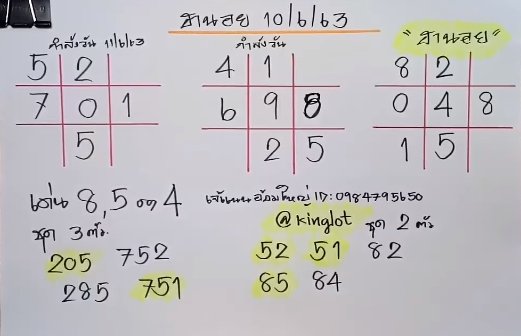 ฮานอย 10/6/63
กำลังวัน 11/6/63
กำลังวัน
"ฮานอย"
5 2
7 0 1
5
4 1
6 9 8
2 5
8 2
0 4 8
1 5
เด่น 8,5 รอง 4
ชุด 3 ตัว.
205 752
285 751
ID: 0984795650
@kinglot ชุด 2 ตัว
52 51 82
85 84